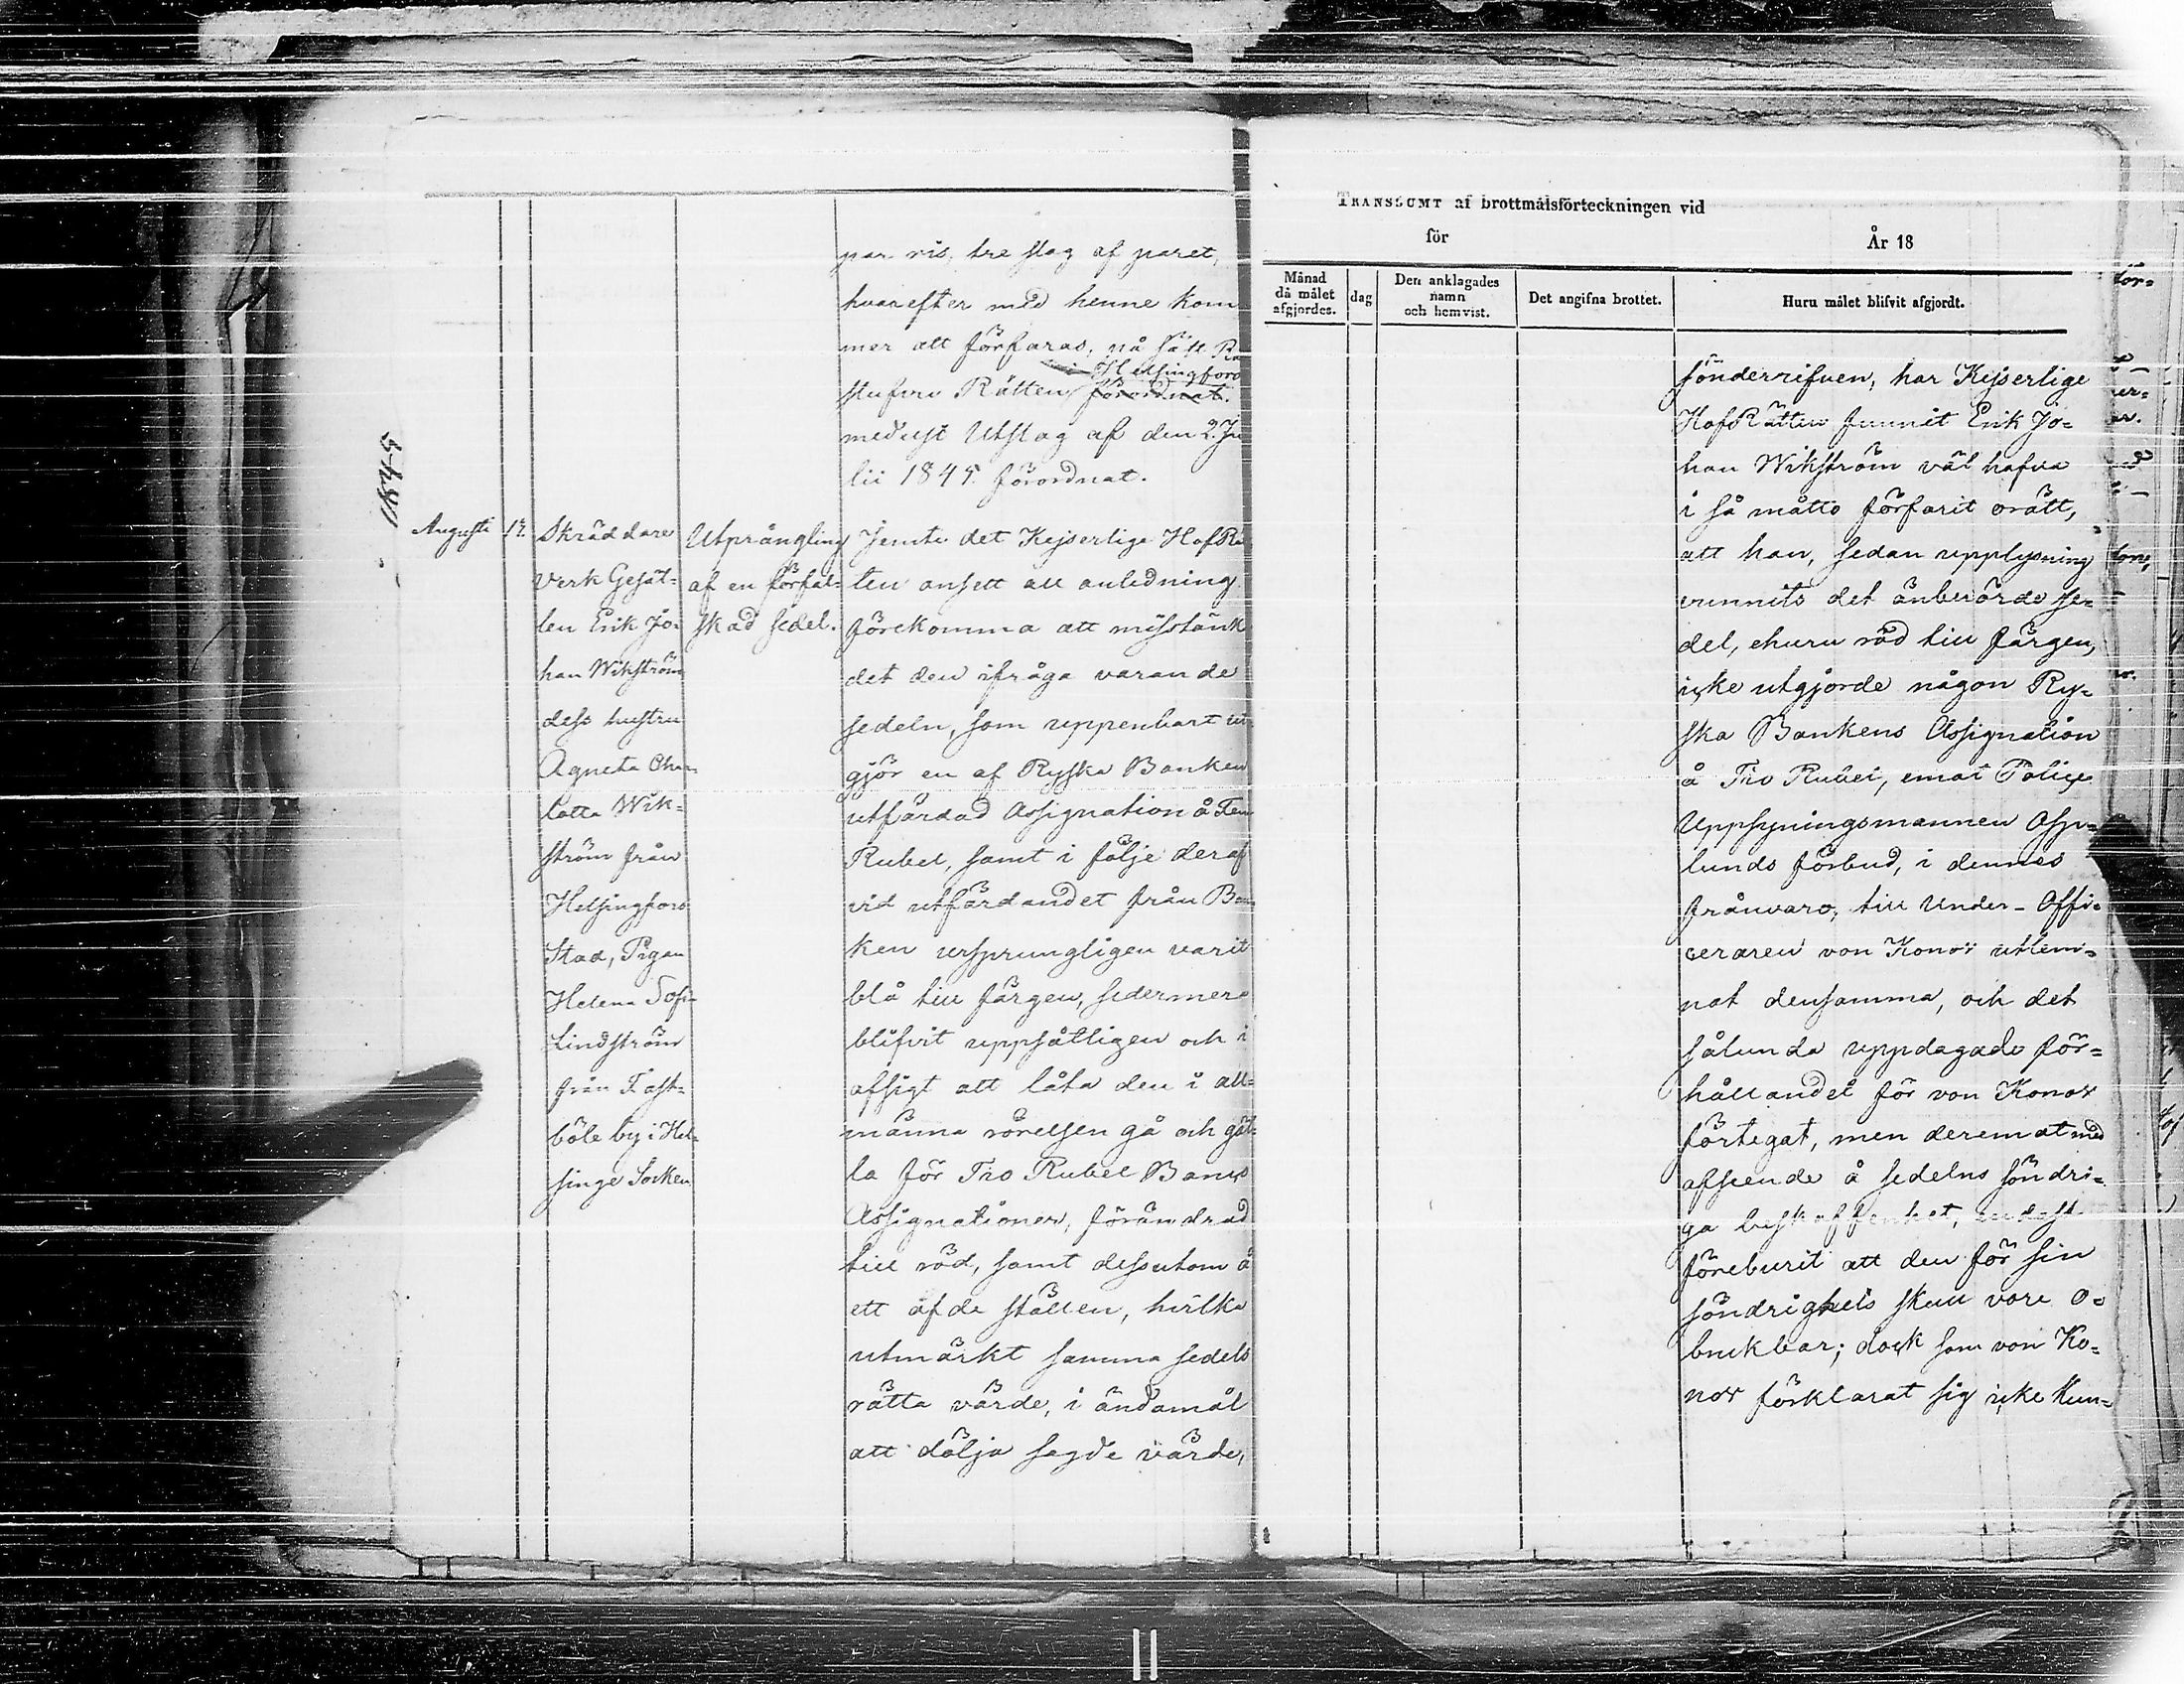 1845
par ris, tre slag af paret,
hvarefter med henne kom
mer att förfaras, på sätt Rå
i Helsingfors
stufvu Rätten förordnat.
medelst Utslag af den 2. Ju
lii 1845. förordnat.
Augusti 12.
Skräddare
verk Gesäl-
len Erik Jo-
han Wikström
dess hustru
Agneta Char-
lotta Wik-
ström från
Helsingfors
Stad, Pigan
Helena Sofi-
Lindström
från Fast-
böle by i Hel-
singe Socken
Utprångling
af en förfal-
skad sedel.
Jemte det Kejserliga HofRä
ten ansett all anledning
förekomma att misstänk
det den ifråga varande
sedeln, som uppenbart ut
gjör en af Ryska Banken
utfärdad Assignation å Fem
Rubel, samt i följe deraf
vid utfärdandet från Ban
ken ursprungligen varit
blå till färgen, sedermera
blifvit uppsåtligen och i
afsigt att låta den i all-
männa rörelsen gå och gäl-
la för Tio Rubel Banco
Assignationer, förändrad
till röd, samt dessutom å
ett af de ställen, hvilka
utmärkt samma sedels
rätta värde, i ändamål
att dölja sagde värde,
TRANSSUMT af brottmålsförteckningen vid
för År 18
Månad då målet afgjordes.
dag
Den anklagades namn och hemvist.
Det angifna brottet.
Huru målet blifvit afgjordt.
sönderrifven, har Kejserlige
HofRätten funnit Erik Jo-
han Wikström väl hafva
i så måtto förfarit orätt,
att han, sedan upplysning
vunnits det änberörde se-
del, ehuru röd till färgen,
icke utgjorde någon Ry-
ska Bankens Assignation
å Tio Rubel, emot Polige
Uppsyningsmannen Asp-
lunds förbud, i dennes
frånvaro, till Under-Offi-
ceraren von Konow utlem-
nat densamma, och det
sålunda uppdagade för-
hållandet för von Konow
förtegat, men deremot med
afseende å sedelns söndri-
ga beskaffenhet, endast
föreburit att den för sin
söndrighets skull vore o-
brukbar; dock som von Ko-
now förklarat sig icke kun-